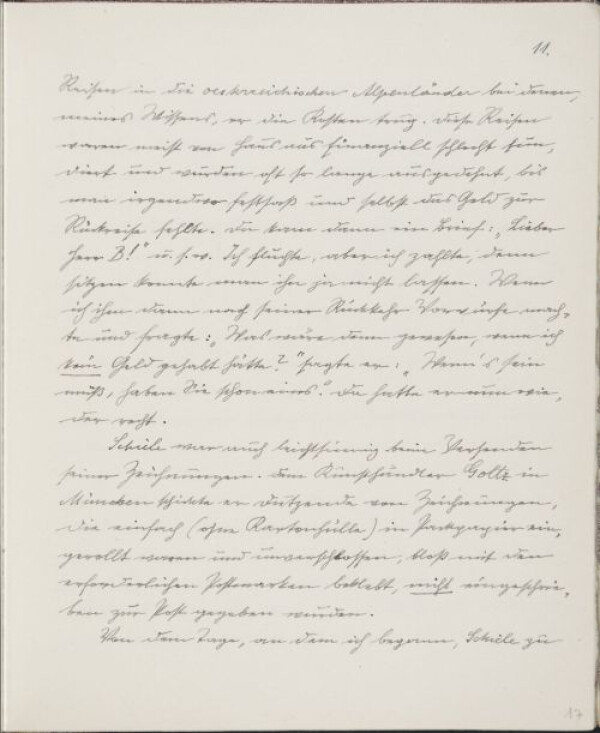 11.
Reisen in die oesterreichischen Alpenländer bei denen,
meines Wissens, er die Kosten trug. Diese Reisen
waren meist von Haus aus finanziell schlecht fun-
diert und wurden oft so lange ausgedehnt, bis
man irgendwo festsaß und selbst das Geld zur
Rückreise fehlte. Da kam dann ein Brief: „Lieber
Herr B!" u. s. w. Ich fluchte, aber ich zahlte, denn
sitzen konnte man ihn ja nicht lassen. Wenn
ich ihm dann nach seiner Rückkehr Vorwürfe mach-
te und fragte: „Was wäre denn gewesen, wenn ich
kein Geld gehabt hätte?" sagte er: „Wenn's sein
muß, haben Sie schon eins." Da hatte er nun wie-
der recht.
Schiele war auch leichtsinnig beim Versenden
seiner Zeichnungen. Dem Kunsthändler Goltz in
München schickte er Dutzende von Zeichnungen,
die einfach (ohne Kartonhülle) in Packpapier ein-
gerollt waren und unverschlossen, bloß mit den
erforderlichen Postmarken beklebt, nicht eingeschrie-
ben zur Post gegeben wurden.
Von dem Tage, an dem ich begann, Schiele zu
17